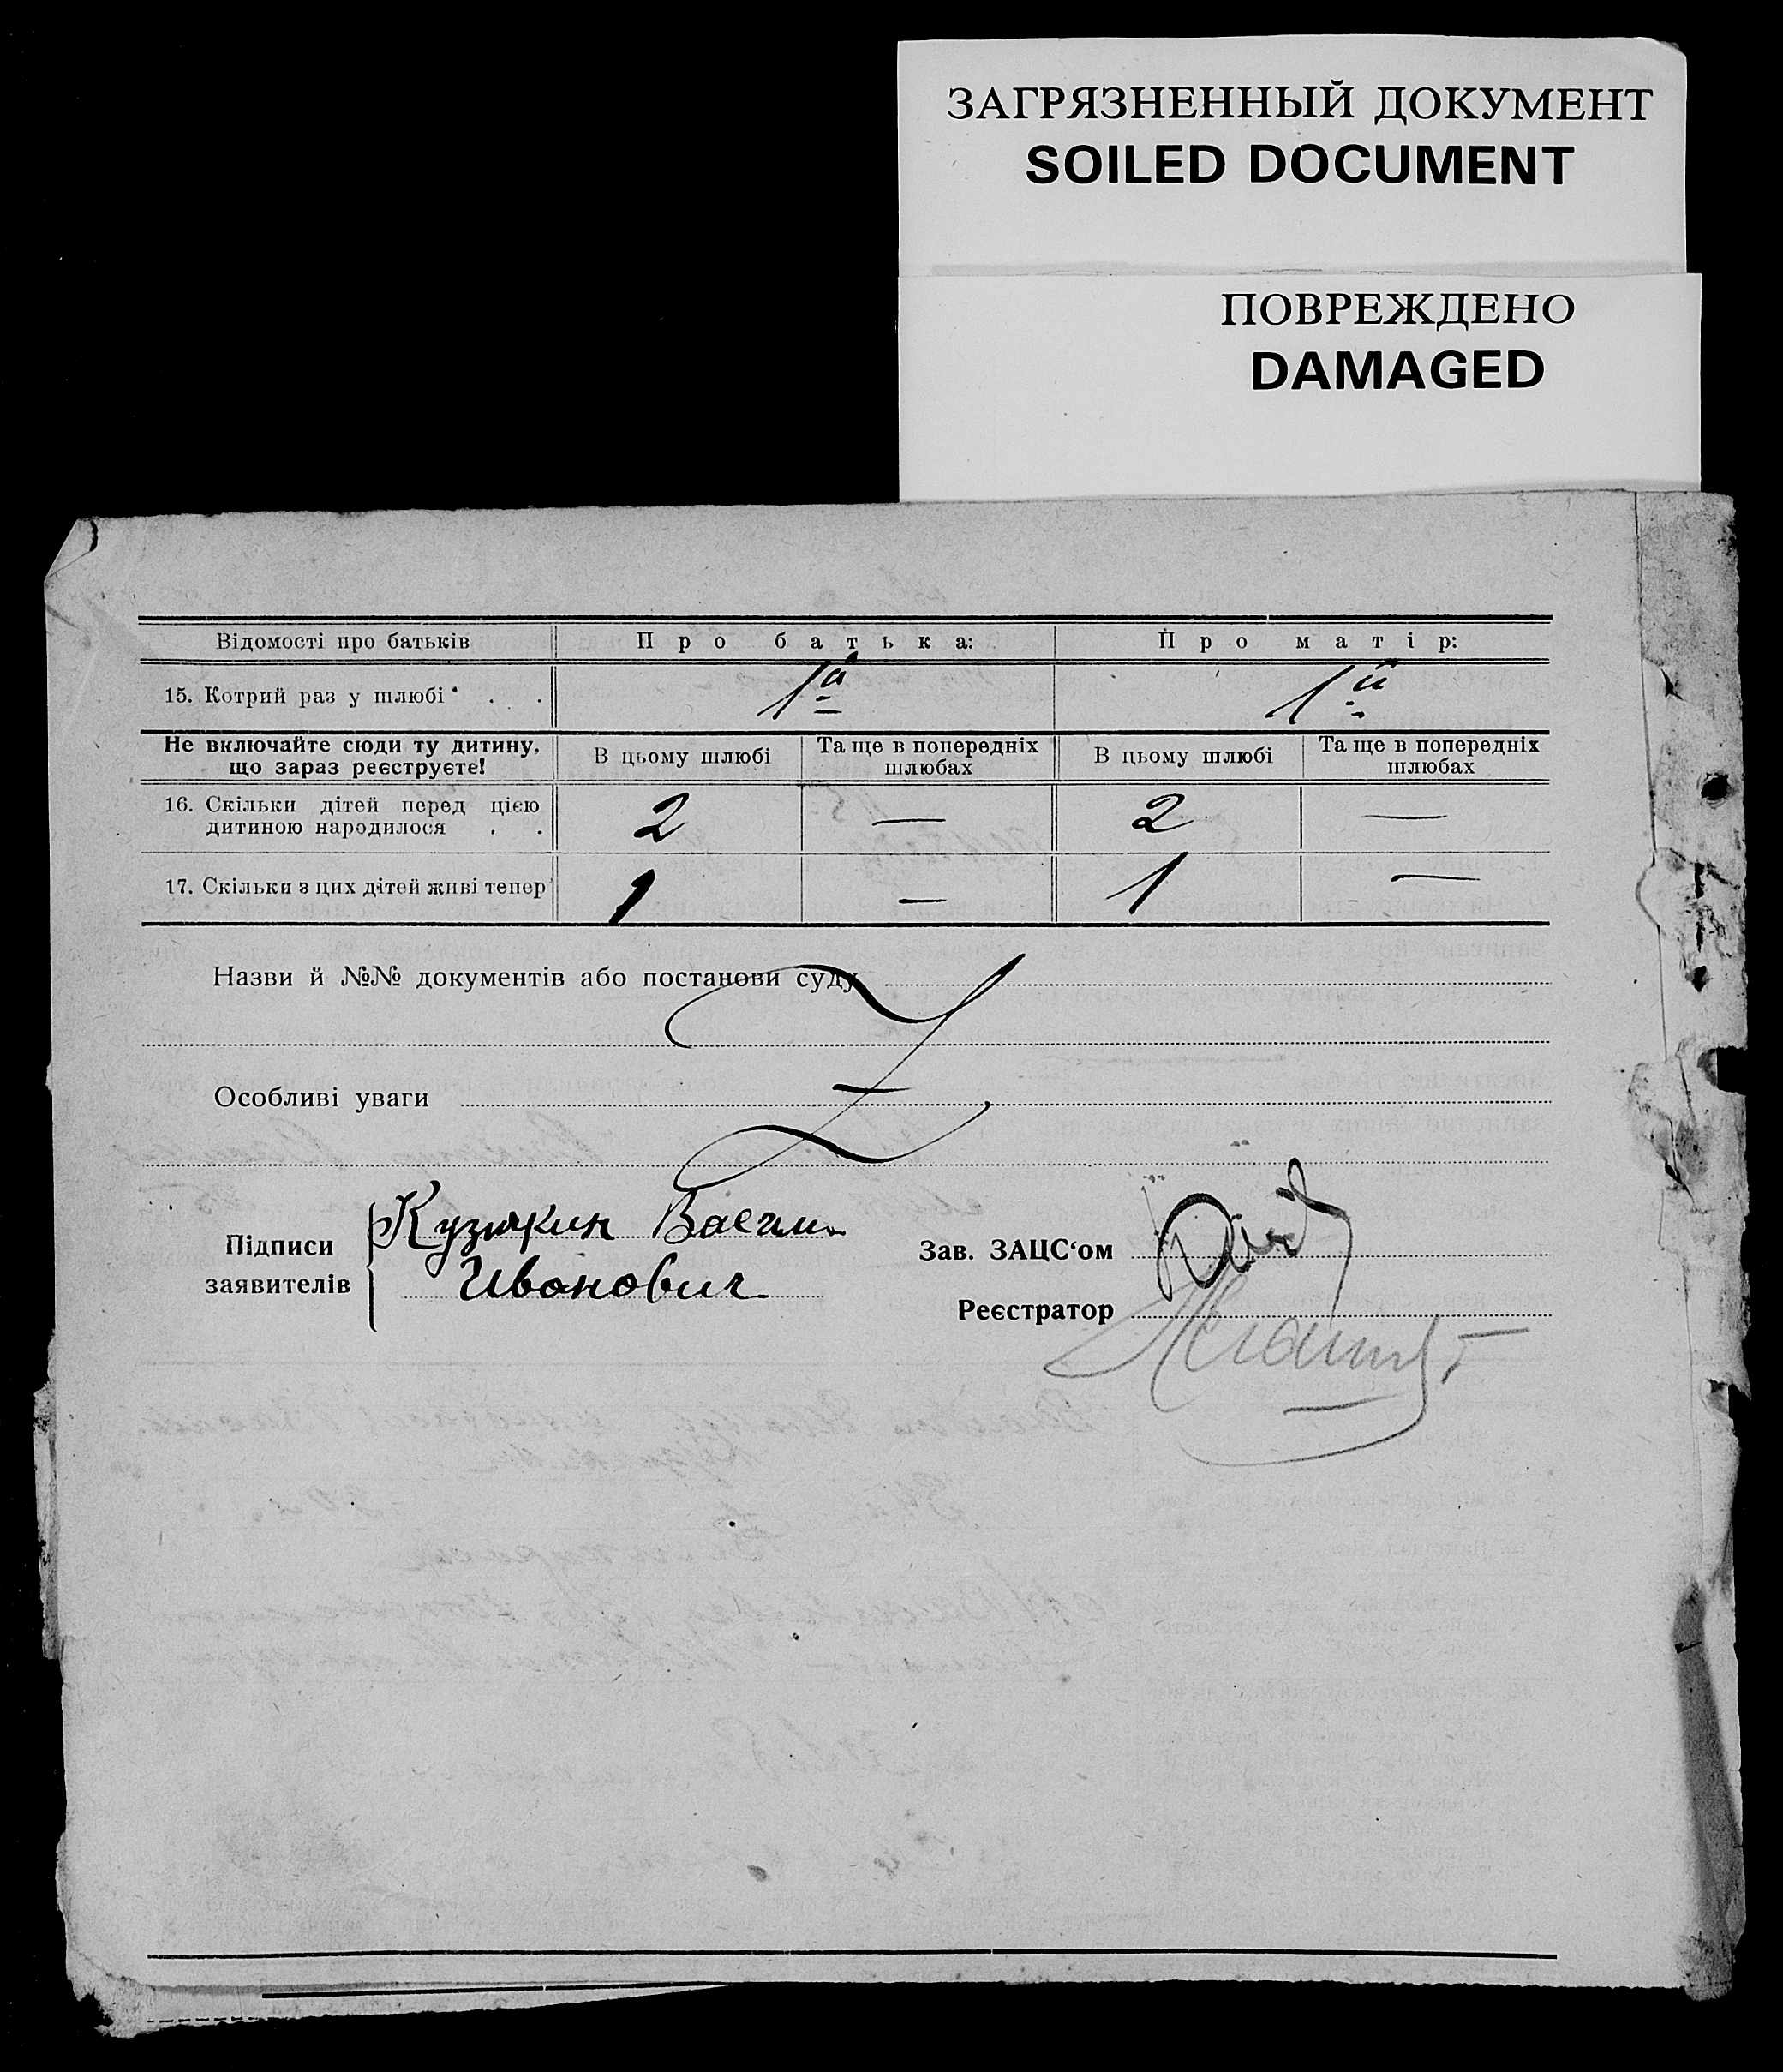 ЗАГРЯЗНЕННЫЙ ДОКУМЕНТ
SOILED DOCUMENT
ПОВРЕЖДЕНО
DAMAGED
Відомості про батьків Про батька: Про матір:
15. Котрий раз у шлюбі . . 1й 1й
Не включайте сюди ту дитину, що зараз реєструєте! В цьому шлюбі Та ще в попередніх шлюбах В цьому шлюбі Та ще в попередніх шлюбах
16. Скільки дітей перед цією дитиною народилося . . 2 — 2 —
17. Скільки з цих дітей живі тепер 1 — 1 —
Назви й №№ документів або постанови суду
Особливі уваги
Підписи заявителів
Кузякин Васили
Иванович
Зав. ЗАЦС‘ом
Реєстратор